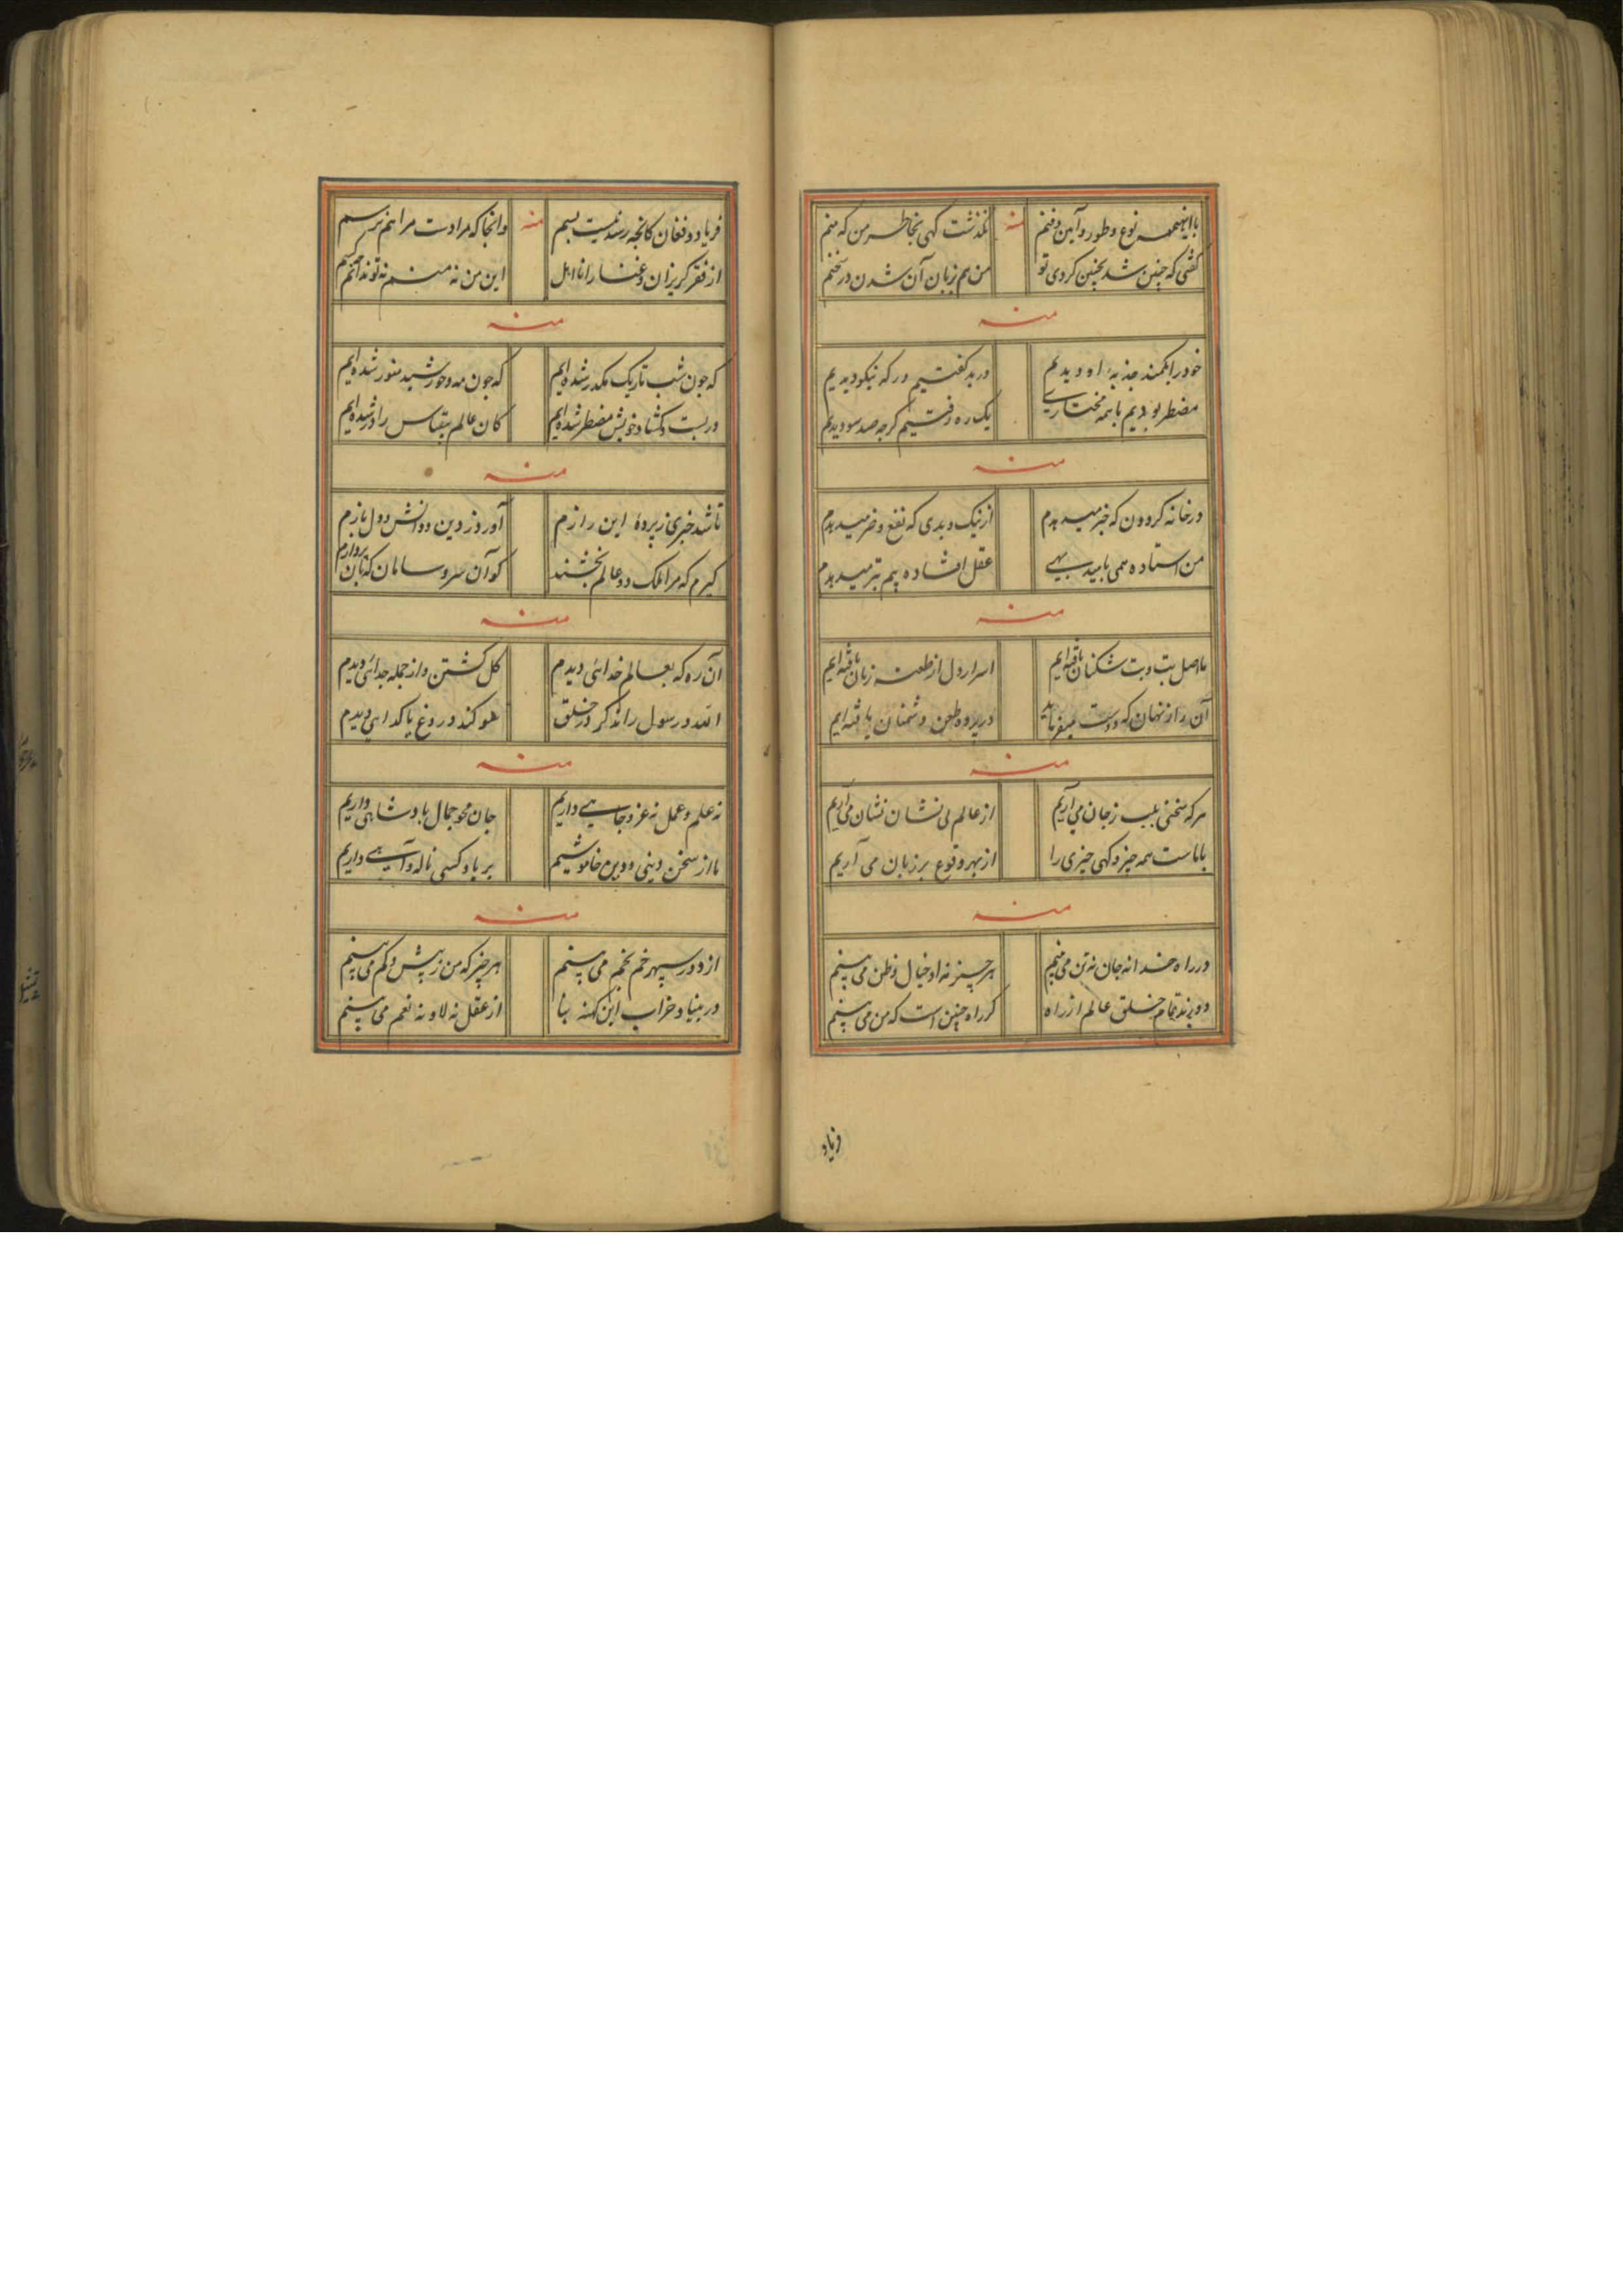 با اینهمه نوع و طور و آیین و فنم منه نگذشت کهی بخاطر من که منم
گفتی که چنین شد بخپنین کردی تو من هم بزبان آن شدن در سخنم
منه
خود را بکمند جذبهٔ او دیدم ور بد گفتیم ور که نیکو دیدیم
مضطر بودیم با همه مختاری یک ره رفتیم گرچه صد سو دیدیم
منه
در خانه کردون که خبر میدهدم از نیک و بدی که نفع و ضر میدهدم
من استاده همی بامید بهی عقل افتاده پیم تبر میدهدم
منه
ما اصل بت و بت شکنان یافته‌ایم اسرار دل از طعنه زبان یافته‌ایم
آن راز نهان که دوست میفرماید در پرده طعن دشمنان یافته‌ایم
منه
هر که سخنی بلب ز جان می آریم از عالم بی نشان نشان می آریم
با ماست همه چیز و کهی چیزی را از بهر وقوع بر زبان می آریم
منه
در راه خدا نه جان نه تن می بینم هر چیز نه او خیال و ظن می بینم
دورند تمام خلق عالم از راه گر راه چنین است که من می بینم
فریاد
فریاد و فغان کانجه رسد نیست بسم منه وانجا که مرادست مرا هم نرسم
از فقر کریزان و غنا را نا اهل این من نه منم نه تو ندانم چه کسم
منه
که چون شب تاریک مکدر شده‌ایم که چون مه و خورشید منور شده‌ایم
در بست و کشاد خویش مضطر شده‌ایم کان عالم بیقیاس را در شده‌ایم
منه
تا شد خبری ز پردهٔ این رازم آورد ز دین و دانش و دل بازم
کیرم که مرا ملک دو عالم بخشند کو آن سر و سامان که بآن پردازم
منه
آن ره که بعالم خدائی دیدم کل کشتن و از جمله جدائی دیدم
الله و رسول را نه کر در خلق سوکند دروغ یا کدایی دیدم
منه
نه علم و عمل نه عز و جاهی داریم جان محو جمال پادشاهی داریم
ما از سخن دینی و دین خاموشیم بر یاد کسی ناله و آهی داریم
منه
از دور سپهر خم بخم می بینم هر چیز که من ز بیش و کم می بینم
در بنیاد خراب این کهنه بنا از عقل نه لا و نه نعم می بینم